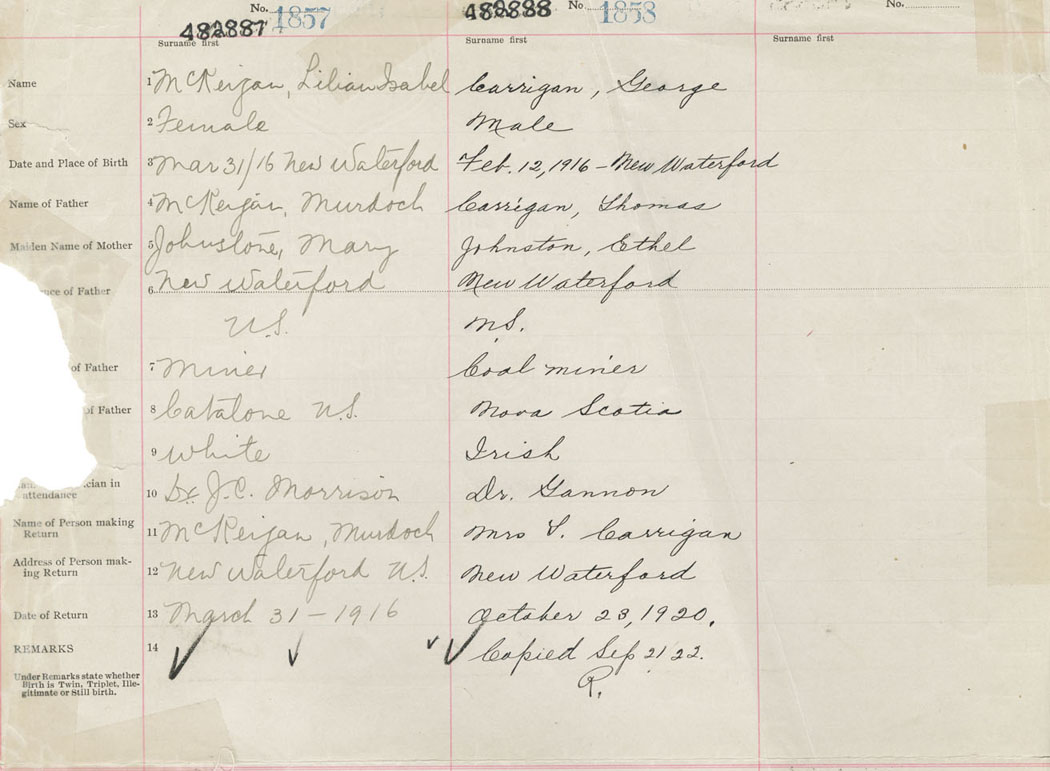 No. 1857
482887
No. 1858
482888
No.
Surname first
Surname first
Surname first
Name
1 McKeigan, Lilian Isabel
Carrigan, George
Sex
2 Female
Male
Date and Place of Birth
3 Mar 31/16 New Waterford
Feb. 12, 1916 - New Waterford
Name of Father
4 McKeigan, Murdoch
Carrigan, Thomas
Maiden Name of Mother
5 Johnstone, Mary
Johnston, Ethel
of Father
6 New Waterford
New Waterford
N.S.
N.S.
of Father
7 Miner
Coal miner
of Father
8 Catalone N.S.
Nova Scotia
9 White
Irish
ician in
attendance
10 Dr J.C. Morrison
Dr. Gannon
Name of Person making
Return
11 McKeigan, Murdoch
Mrs T. Carrigan
Address of Person mak-
ing Return
12 New Waterford N.S.
New Waterford
Date of Return
13 March 31 - 1916
October 23, 1920.
REMARKS
14
Copied Sep 21 22.
R.
Under Remarks state whether
Birth is Twin, Triplet, Ille-
gitimate or Still birth.